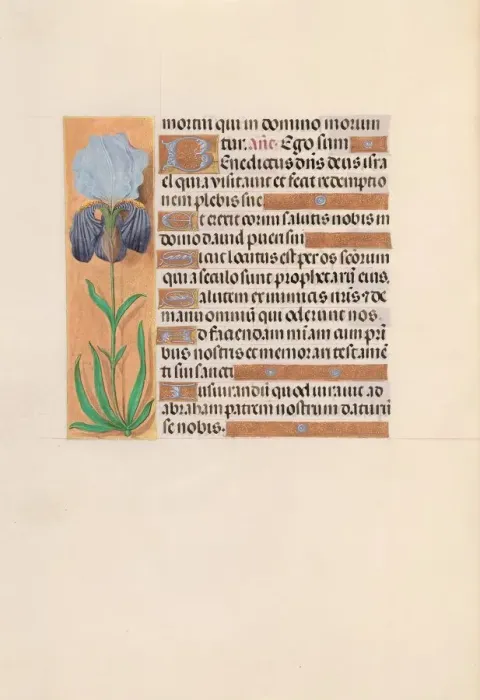 mortui qui in domino moriun
tur. añe. Ego sum
Benedictus dñs deus isra
el quia visitavit et fecit redemptio
nem plebis sue
Et erexit cornu salutis nobis in
domo david pueri sui
Sicut locutus est per os sc̃orum
qui a seculo sunt prophetarũ eius.
Salutem ex inimicis nr̃is ⁊ de
manu omniũ qui oderunt nos.
Ad faciendam miãm cum patri
bus nostris et memorari testamẽ
ti sui sancti
Iusiurandũ quod iuravit ad
abraham patrem nostrum daturũ
se nobis.